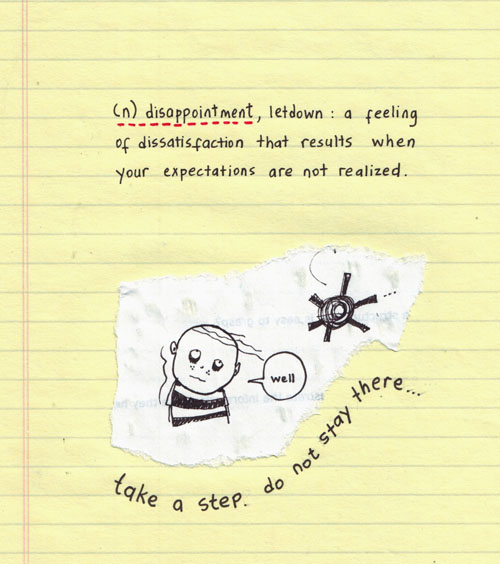 (n) disappointment, letdown : a feeling
of dissatisfaction that results when
your expectations are not realized.
well
take a step. do not stay there...